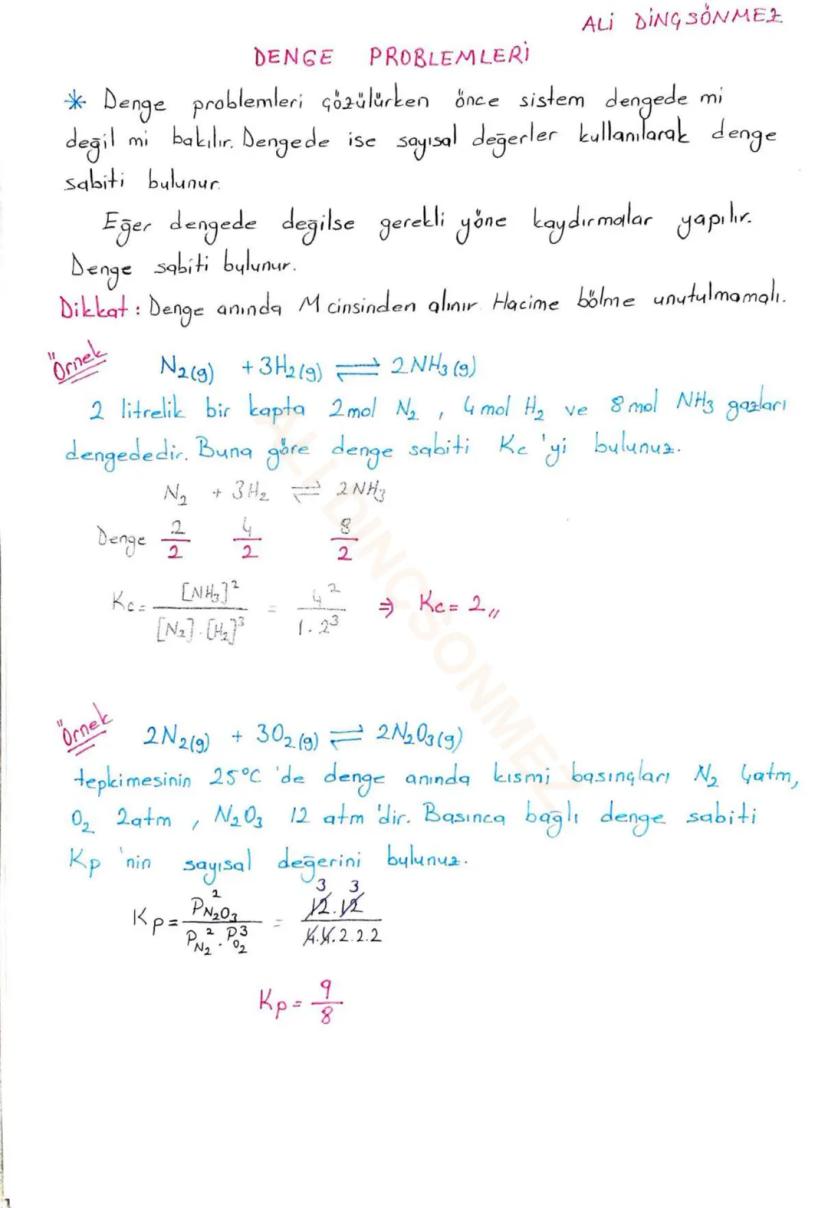 ALİ DİNÇSÖNMEZ
DENGE PROBLEMLERİ
* Denge problemleri çözülürken önce sistem dengede mi
değil mi bakılır. Dengede ise sayısal değerler kullanılarak denge
sabiti bulunur.
Eğer dengede değilse gerekli yöne kaydırmalar yapılır.
Denge sabiti bulunur.
Dikkat : Denge anında M cinsinden alınır. Hacime bölme unutulmamalı.
Örnek N₂(g) + 3H₂(g) ⇌ 2NH₃(g)
2 litrelik bir kapta 2mol N₂ , 4mol H₂ ve 8mol NH₃ gazları
dengededir. Buna göre denge sabiti Kc 'yi bulunuz.
N₂ + 3H₂ ⇌ 2NH₃
Denge 2/2 4/2 8/2
Kc = [NH₃]² / [N₂].[H₂]³ = 4² / 1.2³ ⇒ Kc = 2,,
Örnek 2N₂(g) + 3O₂(g) ⇌ 2N₂O₃(g)
tepkimesinin 25°C 'de denge anında kısmi basınçları N₂ 4atm,
O₂ 2atm , N₂O₃ 12 atm 'dir. Basınca bağlı denge sabiti
Kp 'nin sayısal değerini bulunuz.
3 3
Kp = P²N₂O₃ / P²N₂ . P³O₂ = 12.12 / 4.4.2.2.2
Kp = 9/8
ALİ DİNÇSÖNMEZ
1